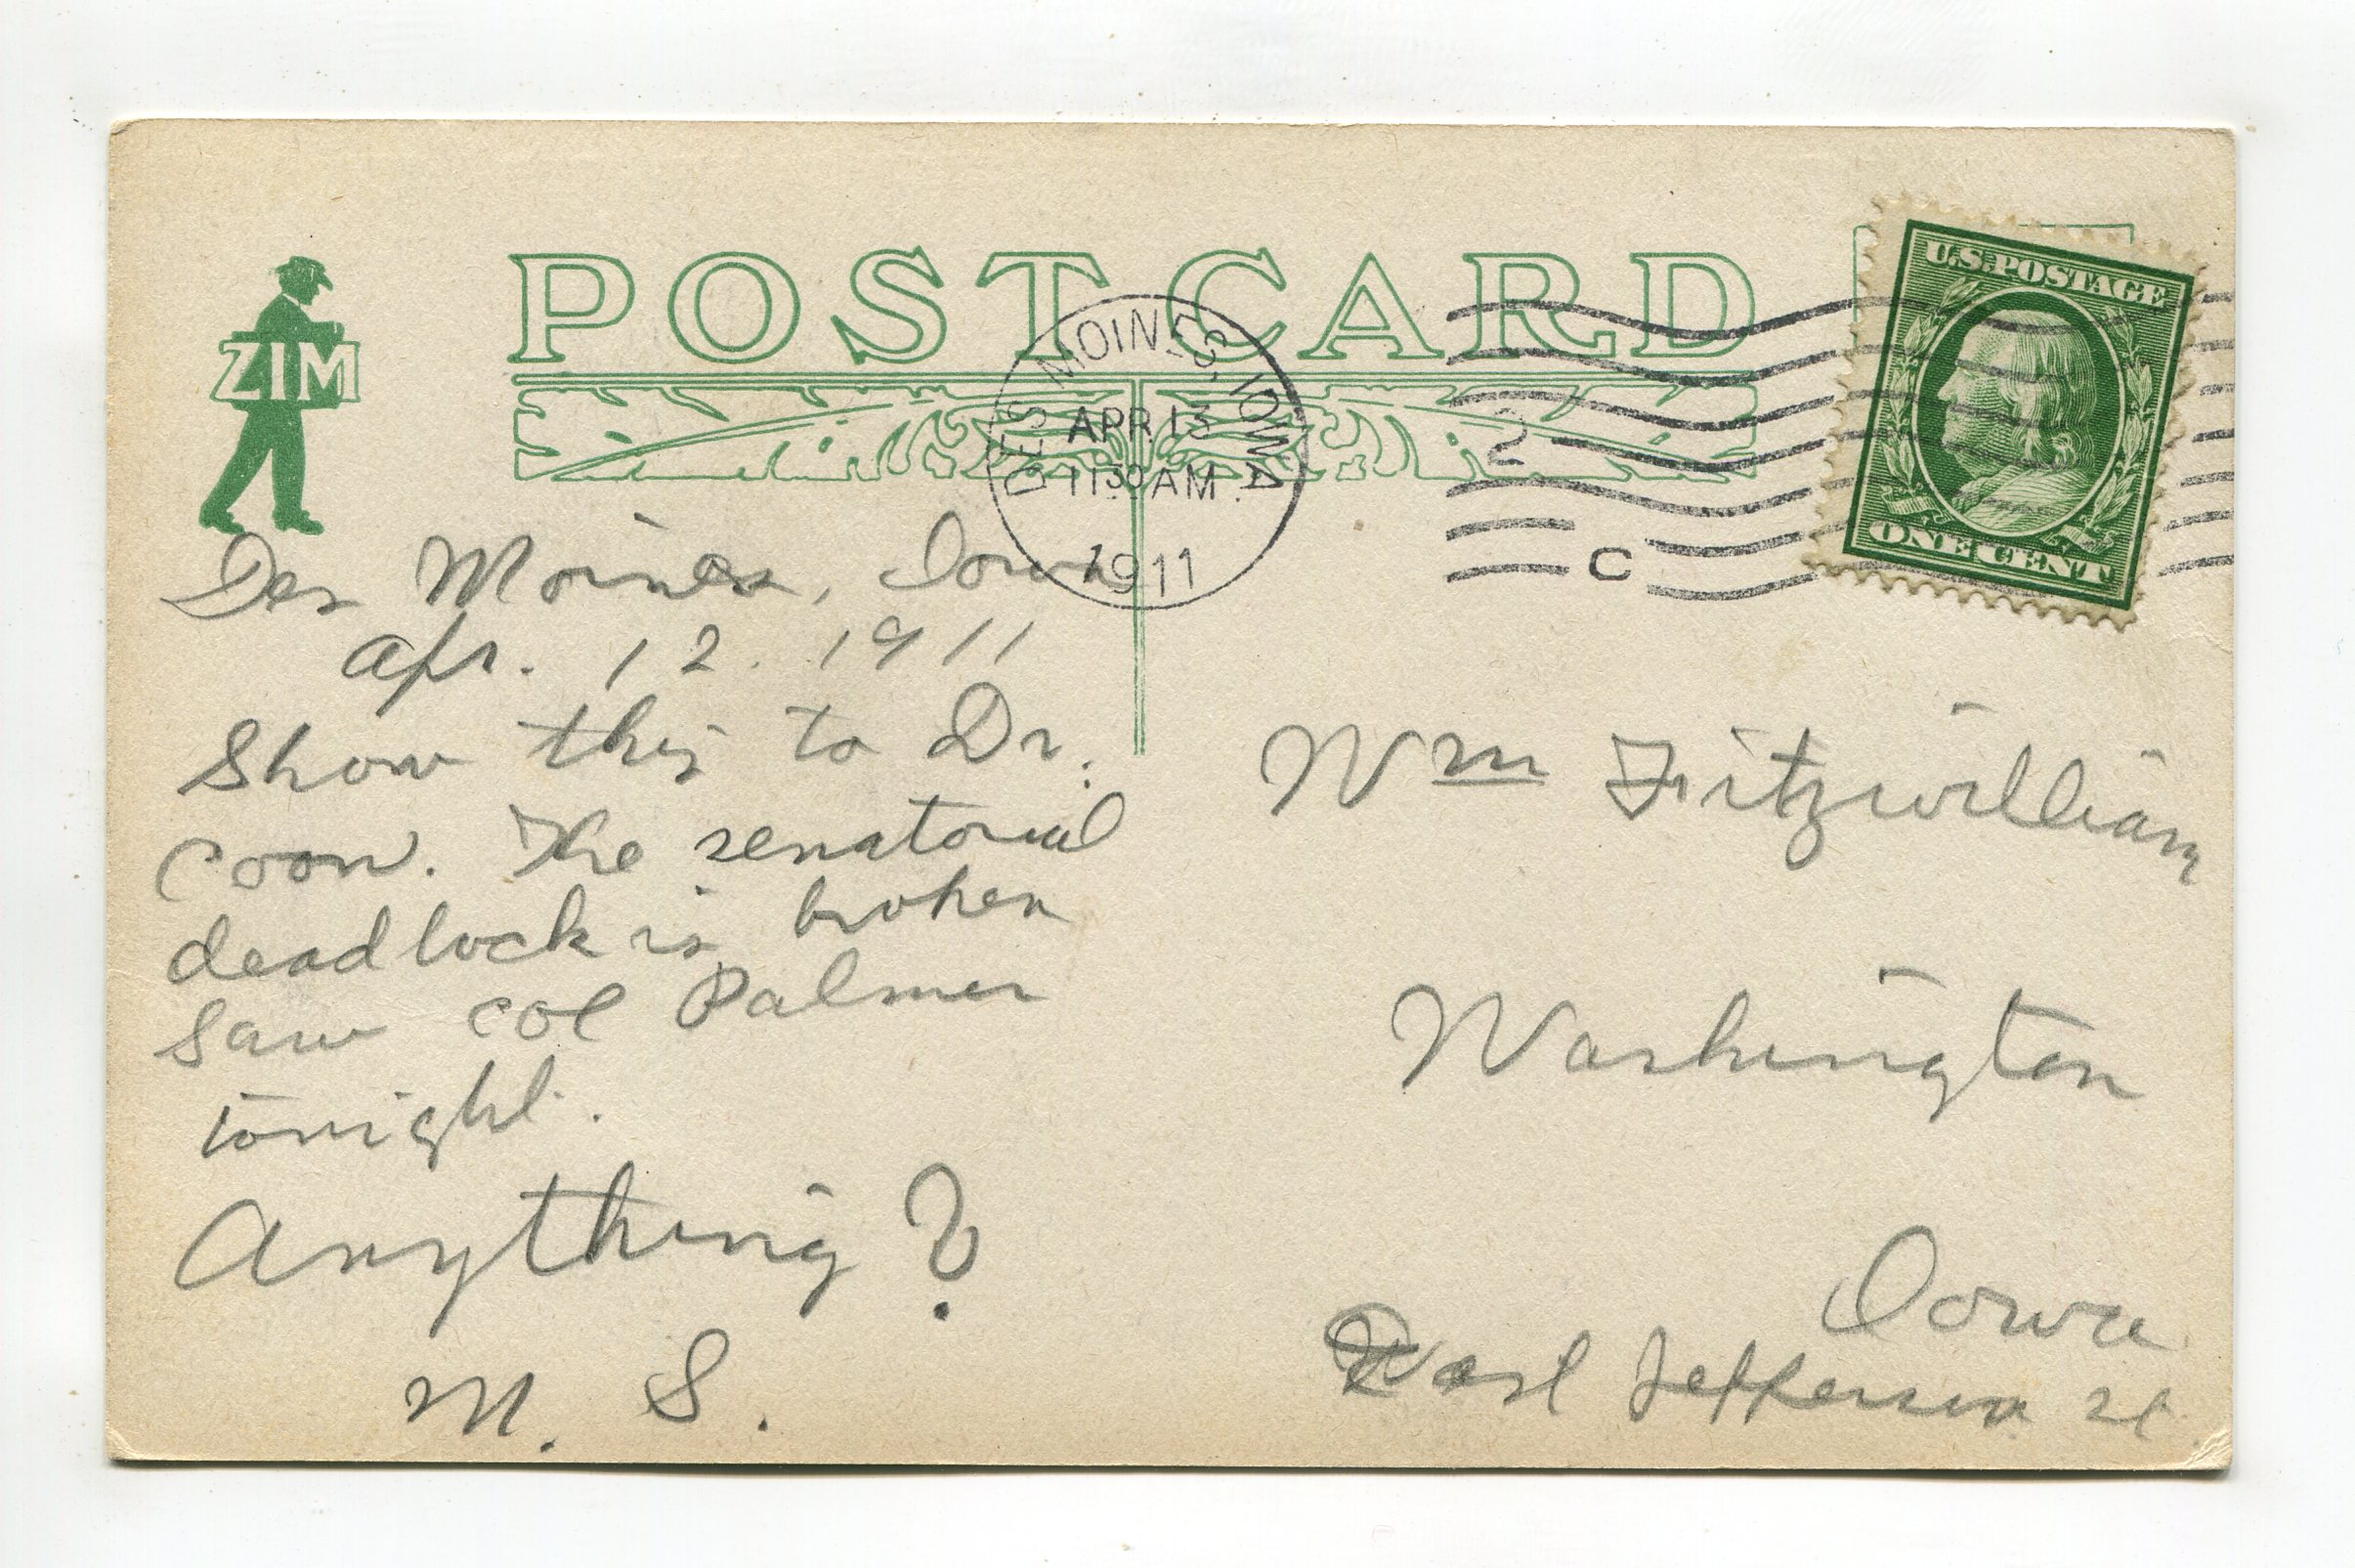 POST CARD
ZIM
DES MOINES, IOWA
APR 13
11 30 AM
1911
2
C
U.S. POSTAGE
ONE CENT
Des Moines, Iowa
Apr. 12. 1911
Show this to Dr.
Coon. The senatorial
deadlock is broken
Saw Col Palmer
tonight.
Anything?
M. S.
Wm Fitzwilliam
Washington
Iowa
East Jefferson St